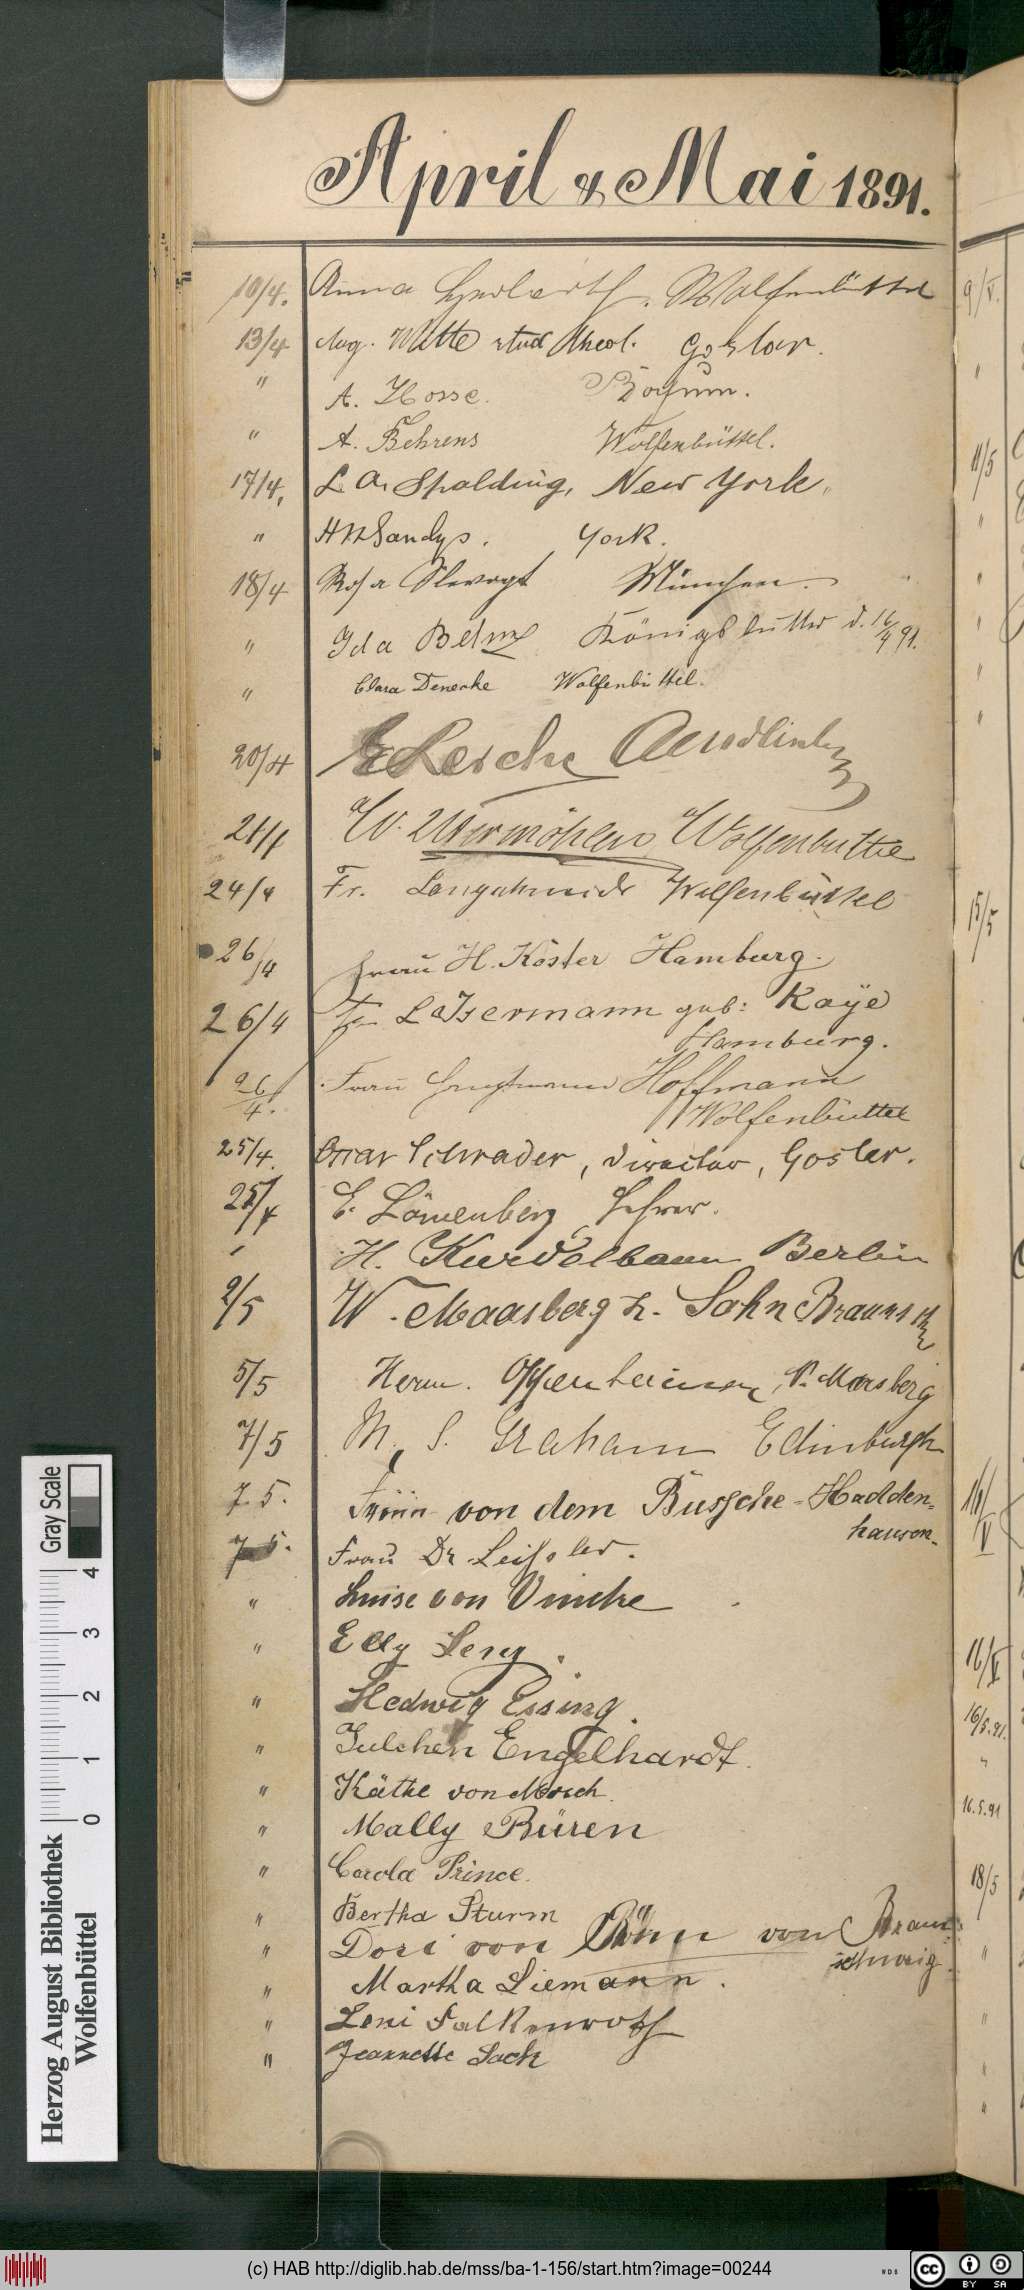 April & Mai 1891.
10/4. Anna Wolfenbüttel
13/4 Aug. Witte stud theol. Goslar.
" A. Hosse. Bochum.
" A. Behrens Wolfenbüttel.
17/4. L. A. Spalding, New York.
" Sandys. York.
18/4 Rosa Slevogt München.
" Ida Königslutter d. 16/4 91.
" Clara Denecke Wolfenbüttel.
20/4 Lerche
21/4 W. Wolfenbüttel
24/4 Fr. Wolfenbüttel
26/4 Frau H. Köster Hamburg.
26/4 Fr. L. Isermann geb: Kaye
Hamburg.
26/4. Frau Hauptmann Hoffmann
Wolfenbüttel
25/4. Oscar Schrader, Director, Goslar.
25/4 E. Löwenberg Lehrer.
H. Berlin
2/5 W. Maasberg u. Sohn
5/5 Herm. Oppenheimer,
7/5 M. S. Graham Edinburgh
7. 5. von dem Bussche-Hadden-
hausen.
7 5. Frau Dr.
" Luise von Vincke
" Elly
" Hedwig Essing.
" Julchen Engelhardt.
" Käthe von
" Mally Büren
" Carola Prince.
" Bertha Sturm
" Dori von von Braun-
schweig.
" Martha Liemann.
" Leni Falkenroth
" Jeannette Sack
9/V.
"
11/5
"
"
"
"
"
15/5
16/V
16/V
16/5.91.
"
16.5.91
18/5
"
"
"
"
Gray Scale
0 1 2 3 4
Herzog August Bibliothek
Wolfenbüttel
(c) HAB http://diglib.hab.de/mss/ba-1-156/start.htm?image=00244
cc BY SA